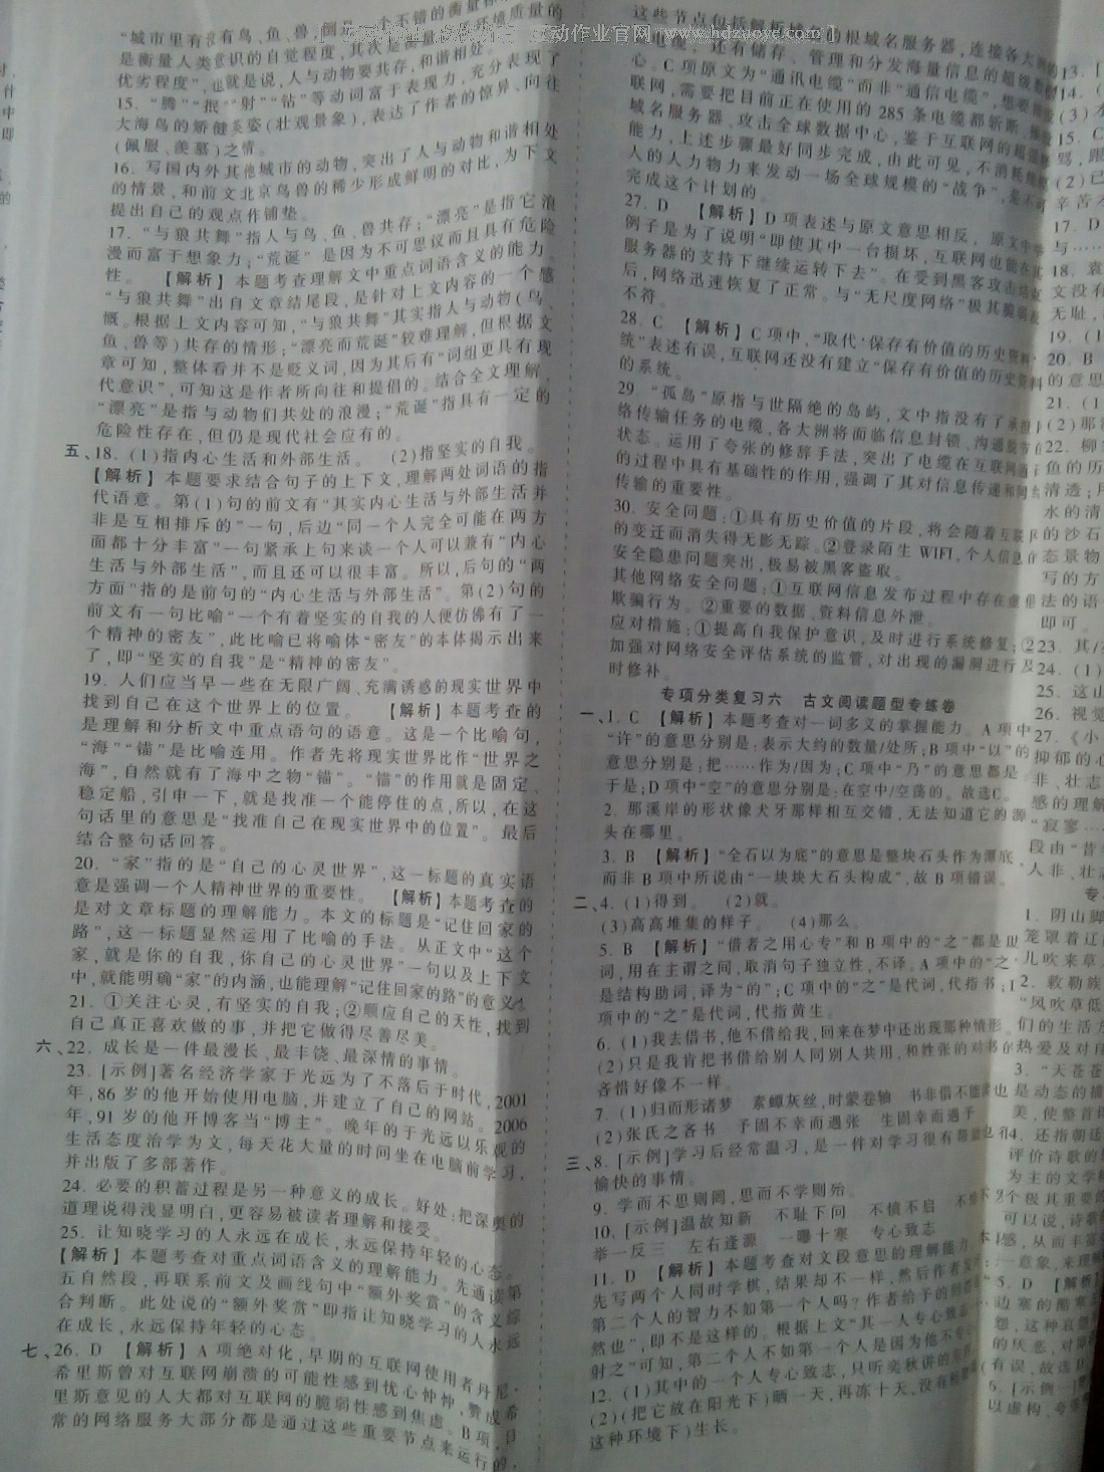 动作业官网 www.hdzuoye.com ]
“城市里有没有鸟、鱼、兽，倒是一个不错的衡量
是衡量人类意识的自觉程度，其次是衡量 环境质量的
优劣程度”，也就是说，人与动物要共存，和谐相处。
15. “腾”“抿”“射”“钻”等动词富于表现力，充分表现了
大海鸟的矫健英姿（壮观景象），表达了作者的惊异、向往
（佩服、羡慕）之情。
16. 写国内外其他城市的动物，突出了人与动物和谐相处
的情景，和前文北京鸟兽的稀少形成鲜明的对比，为下文
提出自己的观点作铺垫。
17. “与狼共舞”指人与鸟、鱼、兽共存；“漂亮”是指它浪
漫而富于想象力；“荒诞”是因为不可思议而且具有危险
性。 【解析】本题考查理解文中重点词语含义的能力。
“与狼共舞”出自文章结尾段，是针对上文内容的一个感
慨。根据上文内容可知，“与狼共舞”其实指人与动物（鸟、
鱼、兽等）共存的情形；“漂亮而荒诞”较难理解，但根据文
章可知，整体看并不是贬义词，因为其后有“词组更具有现
代意识”，可知这是作者所向往和提倡的。结合全文理解，
“漂亮”是指与动物们共处的浪漫；“荒诞”指具有一定的
危险性存在，但仍是现代社会应有的。
五、18. (1)指内心生活和外部生活。 (2)指坚实的自我。
【解析】本题要求结合句子的上下文，理解两处词语的指
代语意。第(1)句的前文有“其实内心生活与外部生活并
非是互相排斥的”一句，后边“同一个人完全可能在两方
面都十分丰富”一句紧承上句来谈一个人可以兼有“内心
生活与外部生活”，而且还可以很丰富。所以，后句的“两
方面”指的是前句的“内心生活与外部生活”。第(2)句的
前文有一句比喻“一个有着坚实的自我的人便仿佛有了一
个精神的密友”，此比喻已将喻体“密友”的本体揭示出来
了，即“坚实的自我”是“精神的密友”。
19. 人们应当早一些在无限广阔、充满诱惑的现实世界中
找到自己在这个世界上的位置。 【解析】本题考查的
是理解和分析文中重点语句的语意。这是一个比喻句，
“海”“锚”是比喻连用。作者先将现实世界比作“世界之
海”，自然就有了海中之物“锚”。“锚”的作用就是固定、
稳定船，引申一下，就是找准一个能停住的点，所以，在这
句话里的意思是“找准自己在现实世界中的位置”。最后
结合整句话回答。
20. “家”指的是“自己的心灵世界”，这一标题的真实语
意是强调一个人精神世界的重要性。 【解析】本题考查的
是对文章标题的理解能力。本文的标题是“记住回家的
路”，这一标题显然运用了比喻的手法。从正文中“这个
家，就是你的自我，你自己的心灵世界”一句以及上下文
中，就能明确“家”的内涵，也能理解“记住回家的路”的意义。
21. ①关注心灵，有坚实的自我；②顺应自己的天性，找到
自己真正喜欢做的事，并把它做得尽善尽美。
六、22. 成长是一件最漫长、最丰饶、最深情的事情。
23. [示例]著名经济学家于光远为了不落后于时代，2001
年，86岁的他开始使用电脑，并建立了自己的网站。2006
年，91岁的他开博客当“博主”。晚年的于光远以乐观的
生活态度治学为文，每天花大量的时间坐在电脑前学习，
并出版了多部著作。
24. 必要的积蓄过程是另一种意义的成长。好处：把深奥的
道理说得浅显明白，更容易被读者理解和接受。
25. 让知晓学习的人永远在成长，永远保持年轻的心态。
【解析】本题考查对重点词语含义的理解能力。先通读第
五自然段，再联系前文及画线句中“额外奖赏”的含义综
合判断。此处说的“额外奖赏”即指让知晓学习的人永远
在成长，永远保持年轻的心态。
七、26. D 【解析】A项绝对化，早期的互联网使用者丹尼·
希里斯曾对互联网崩溃的可能性感到忧心忡忡，赞成希
里斯意见的人大都对互联网的脆弱性感到焦虑。B项，日
常的网络服务大部分都是通过这些重要节点来运行的，
这些节点包括解析域名 根域名服务器，连接各大洲的
电缆，还有储存、管理和分发海量信息的超级数据
心。C项原文为“通讯电缆”而非“通信电缆”，想要
联网，需要把目前正在使用的285条电缆都斩断、
域名服务器、攻击全球数据中心，鉴于互联网的超强
能力，上述步骤最好同步完成，由此可见，不消耗
人的人力物力来发动一场全球规模的“战争”，是不可
完成这个计划的。
27. D 【解析】D项表述与原文意思相反，原文中
例子是为了说明“即使其中一台损坏，互联网也能在其
服务器的支持下继续运转下去”。在受到黑客攻击
后，网络迅速恢复了正常。与“无尺度网络”极其脆弱
不符。
28. C 【解析】C项中，“取代‘保存有价值的历史资料’
统”表述有误，互联网还没有建立“保存有价值的历史资料
的系统。
29. “孤岛”原指与世隔绝的岛屿，文中指没有了承担
络传输任务的电缆，各大洲将面临信息封锁、沟通
状态。运用了夸张的修辞手法，突出了电缆在互联网
的过程中具有基础性的作用，强调了其对信息传递和网
传输的重要性。
30. 安全问题：①具有历史价值的片段，将会随着互联
的变迁而消失得无影无踪。②登录陌生WIFI，个人信息
安全隐患问题突出，极易被黑客盗取。
其他网络安全问题：①互联网信息发布过程中存在虚
欺骗行为。②重要的数据、资料信息外泄。
应对措施：①提高自我保护意识，及时进行系统修复；②
加强对网络安全评估系统的监管，对出现的漏洞进行及
时修补。
专项分类复习六 古文阅读题型专练卷
一、1. C 【解析】本题考查对一词多义的掌握能力。A项中
“许”的意思分别是：表示大约的数量/处所；B项中“以”的
意思分别是：把……作为/因为；C项中“乃”的意思都是
于是；D项中“空”的意思分别是：在空中/空荡的。故选C。
2. 那溪岸的形状像犬牙那样相互交错，无法知道它的源
头在哪里。
3. B 【解析】“全石以为底”的意思是整块石头作为潭底，
而非B项中所说由“一块块大石头构成”，故B项错误。
二、4. (1)得到。 (2)就。
(3)高高堆集的样子。 (4)那么。
5. B 【解析】“借者之用心专”和B项中的“之”都是助
词，用在主谓之间，取消句子独立性，不译。A项中的“之”
是结构助词，译为“的”；C项中的“之”是代词，代指书；D
项中的“之”是代词，代指黄生。
6. (1)我去借书，他不借给我，回来在梦中还出现那种情形。
(2)只是我肯把书借给别人同别人共用，和姓张的对书的
吝惜好像不一样。
7. (1)归而形诸梦 素蟫灰丝，时蒙卷轴 书非借不能读也
(2)张氏之吝书 予固不幸而遇张 生固幸而遇予
三、8. [示例]学习后经常温习，是一件对学习很有帮助也
愉快的事情。
9. 学而不思则罔，思而不学则殆。
10. [示例]温故知新 不耻下问 不愤不启
举一反三 左右逢源 一曝十寒 专心致志
11. D 【解析】本题考查对文段意思的理解能力。
先写两个人同时学棋，结果却不一样，然后作者
第二个人的智力不如第一个人吗？作者给予的
然也”，即不是这样的。根据上文“其一人专心致志
射之”可知，第二个人不如第一个人是因为他不专
12. (1)其中的一个人专心致志，只听奕秋讲的
(2)(把它放在阳光下)晒一天，再冻十天，没有
这种环境下)生长。
13. [
14. (
(3)
15. C
骂，跟
(2)已
辛苦
17. D
与……
18. 袁
文没有
无耻，
19. (1
20. B
的意思
21. (1
(2)那
22. 柳
鱼的历
清透；
水的清
的沙石
态景物
写的方
法的语
即可。
23. 其/
24. (1)
25. 这山
26. 视觉
27. 《小
抑郁的心
非、壮志
感的理解
“寂寥……
段由“昔
人非、壮志
专
1. 阴山脚
笼罩着辽
儿吹来草
2. 敕勒族
“风吹草低
们的生活方
热爱及对自
3. “天苍苍
是动态的描
美，使整首
4. 还指朝廷
评价诗歌的
为主的文学
个极其重要的
可以说，诗歌
感，从而丰富
意象，来理解
5. D 【解析】
边塞的酷寒
怨，这种哀怨
的仄恹，对
有误，故选D
6. [示例一]
以虚构、夸张